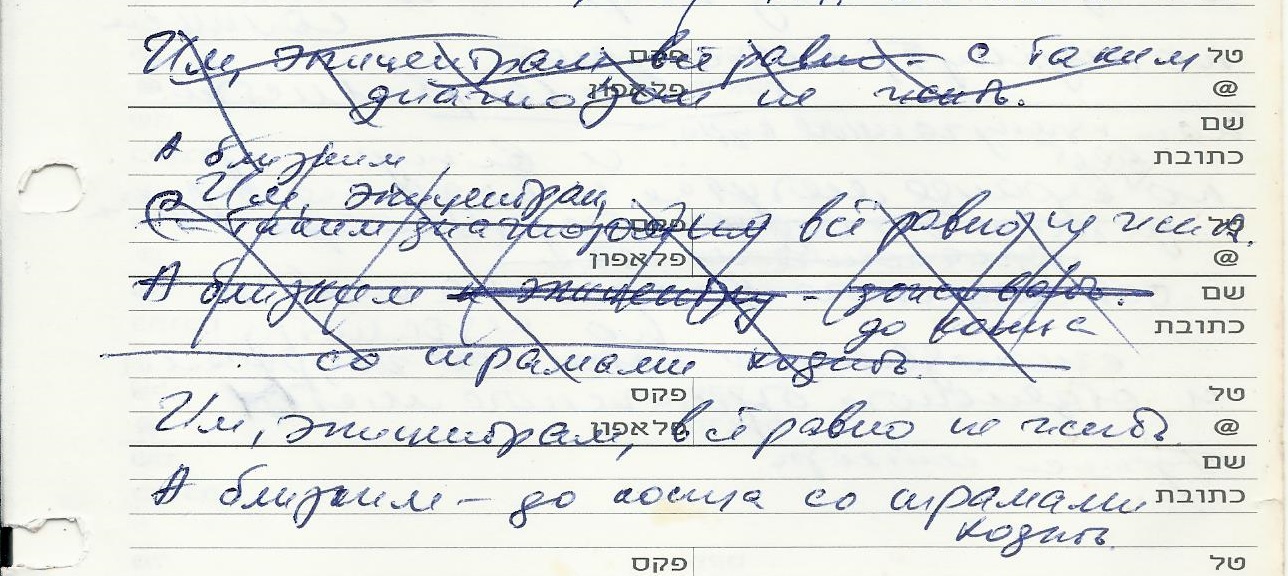 Им, эпицентрам всё равно – с таким
פקס טל
диагнозом не жить.
פלאפון @
שם
А близким
כתובת
Им, эпицентрам,
С таким диагнозом им всё равно не жить.
פקס טל
פלאפון @
А близким к эпицентру –
שם
до конца
כתובת
со шрамами ходить.
פקס טל
Им, эпицентрам, всё равно не жить.
פלאפון @
שם
А близким – до конца со шрамами
כתובת
ходить.
פקס טל